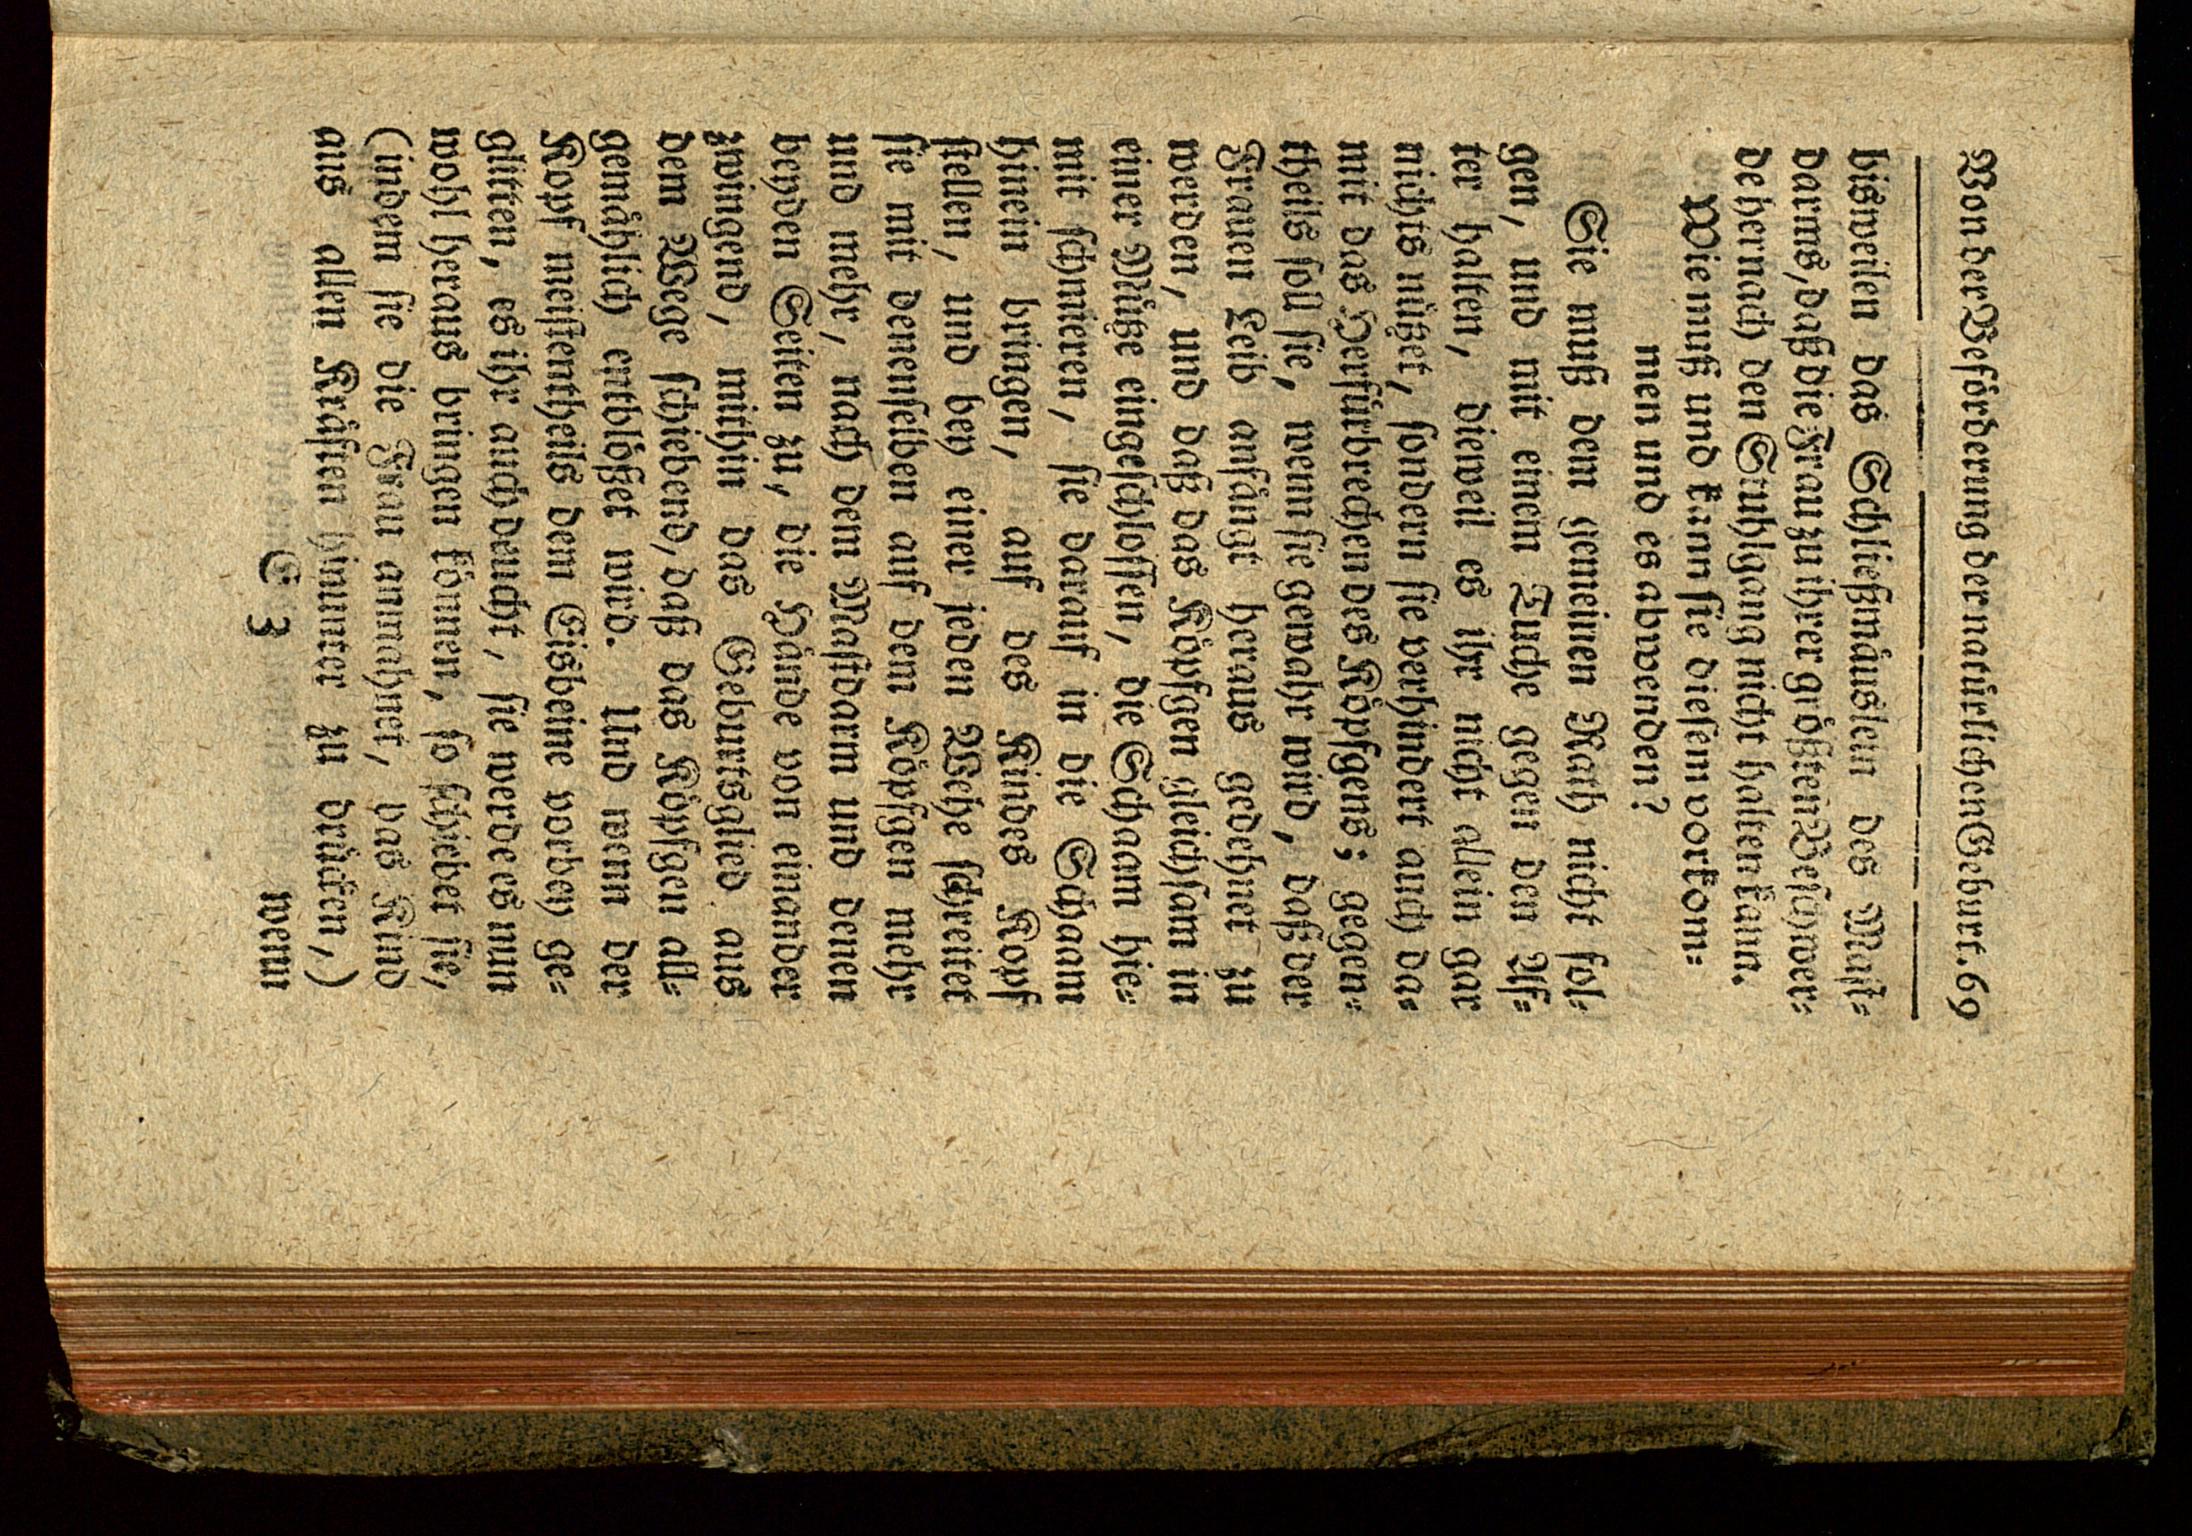 Von der Beförderung der natürlichen Geburt. 69
bisweilen das Schließmäuslein des Mast-
darms, daß die Frau zu ihrer größten Beschwer-
de hernach den Stuhlgang nicht halten kann.
Wie muß und kann sie diesem vorkom-
men und es abwenden?
Sie muß dem gemeinen Rath nicht fol-
gen, und mit einem Tuche gegen den Af-
ter halten, dieweil es ihr nicht allein gar
nichts nützet, sondern sie verhindert auch da-
mit das Herfürbrechen des Köpfgens; gegen-
theils soll sie, wenn sie gewahr wird, daß der
Frauen Leib anfängt heraus gedehnet zu
werden, und daß das Köpfgen gleichsam in
einer Mütze eingeschlossen, die Schaam hie-
mit schmieren, sie darauf in die Schaam
hinein bringen, auf des Kindes Kopf
stellen, und bey einer jeden Wehe schreitet
sie mit denenselben auf dem Köpfgen mehr
und mehr, nach dem Mastdarm und denen
beyden Seiten zu, die Hände von einander
zwingend, mithin das Geburtsglied aus
dem Wege schiebend, daß das Köpfgen all-
gemählich entblößet wird. Und wenn der
Kopf meistentheils dem Eisbeine vorbey ge-
glitten, es ihr auch deucht, sie werde es nun
wohl heraus bringen können, so schiebet sie,
(indem sie die Frau anmahnet, das Kind
aus allen Kräften hinunter zu drücken,)
E 3 wenn